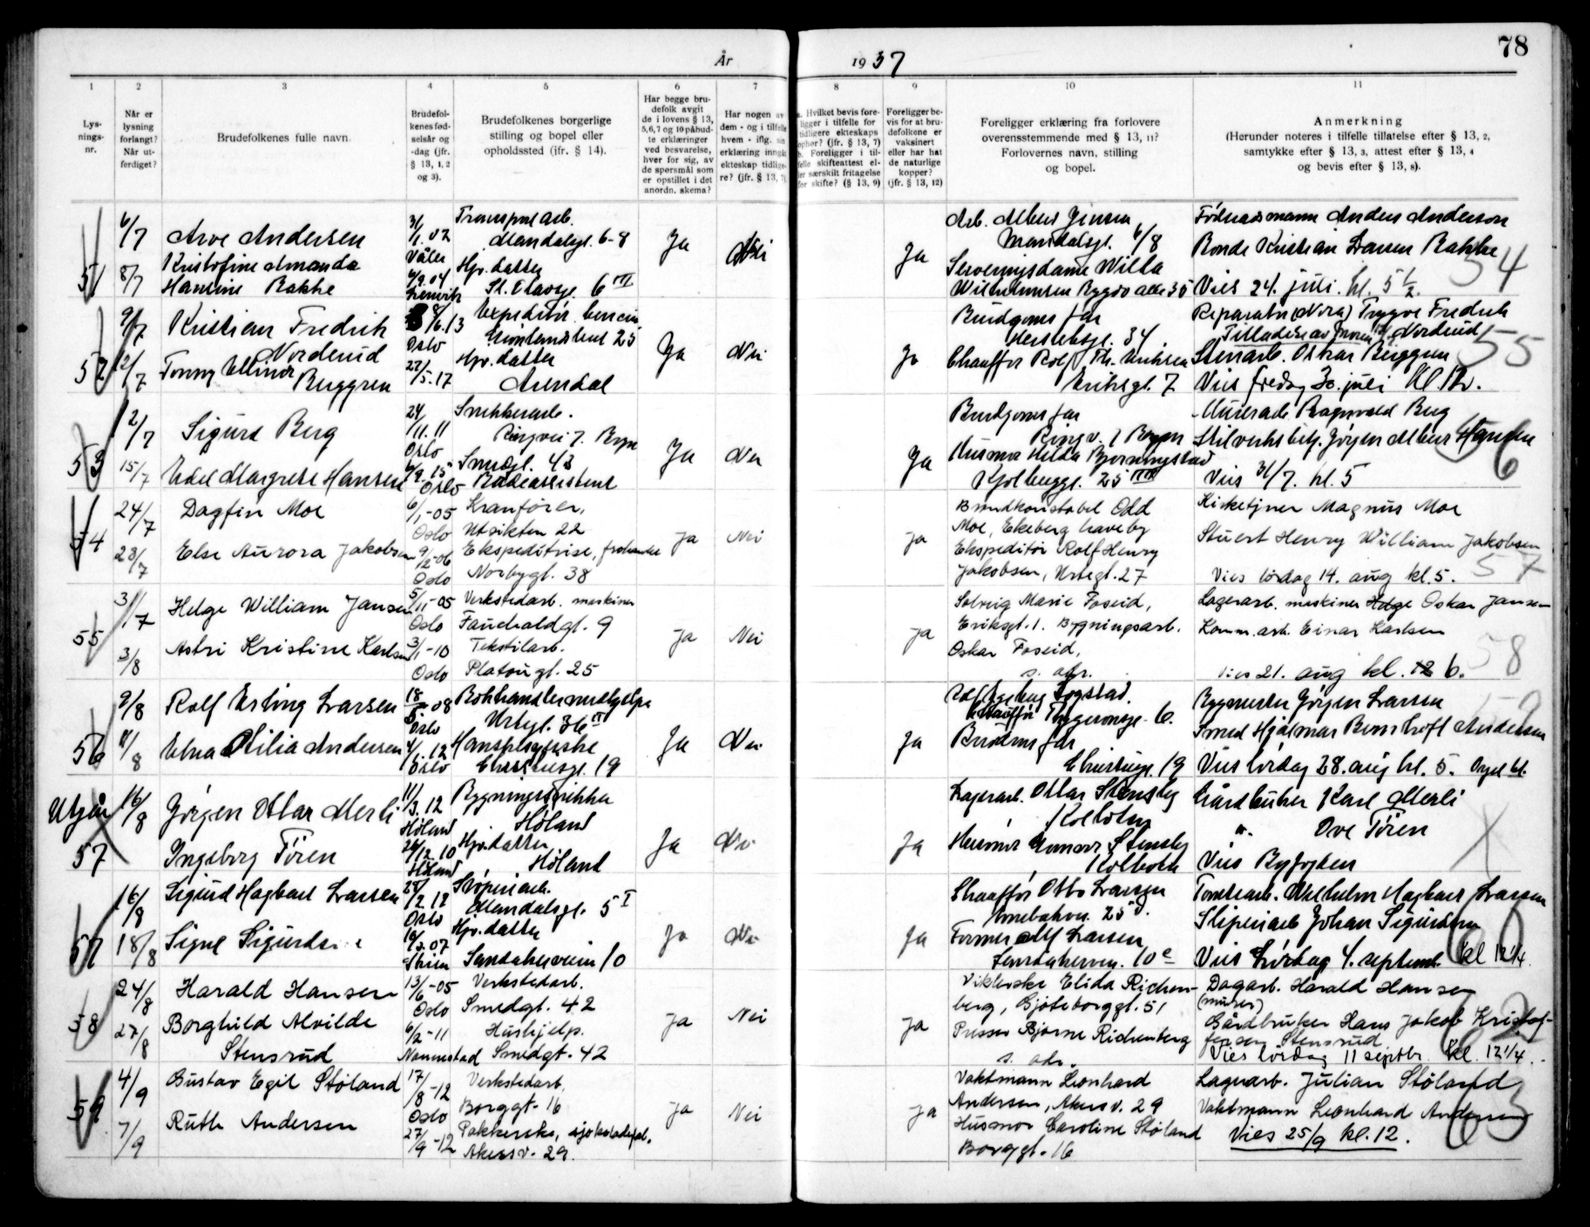 78
År 1937
1 2 3 4 5 6 7 8 9 10 11
Lys-
nings-
nr.
Når er
lysning
forlangt?
Når ut-
ferdiget?
Brudefolkenes fulle navn.
Brudefol-
kenes fød-
selsår og
-dag (jfr.
§ 13, 1, 2
og 3).
Brudefolkenes borgerlige
stilling og bopel eller
opholdssted (jfr. § 14).
Har begge bru-
defolk avgit
de i lovens § 13,
5, 6, 7 og 10 påbud-
te erklæringer
ved besvarelse,
hver for sig, av
de spørsmål som
er opstillet i det
anordn. skema?
Har nogen av
dem - og i tilfelle
hvem - iflg. sin
erklæring inngått
ekteskap tidlige-
re? (jfr. § 13, 7)
a. Hvilket bevis fore-
ligger i tilfelle for
tidligere ekteskaps
ophør? (jfr. § 13, 7)
b. Foreligger i til-
felle skifteattest el-
ler særskilt fritagelse
for skifte? (§ 13, 9)
Foreligger be-
vis for at bru-
defolkene er
vaksinert
eller har hat
de naturlige
kopper?
(jfr. § 13, 12)
Foreligger erklæring fra forlovere
overensstemmende med § 13, 11?
Forlovernes navn, stilling
og bopel.
Anmerkning
(Herunder noteres i tilfelle tillatelse efter § 13, 2,
samtykke efter § 13, 3, attest efter § 13, 4
og bevis efter § 13, 8).
51
6/7 Arve Andersen
3/1 02
Våler
Transportarb.
Mandalsgt. 6-8
8/7 Kristofine Amanda
Hansine Bakke
6/9 04
Hjv. datter
St. Olavsgt. 6 III
Ja Nei Ja
Arb. Albert Jensen
Mandalsgt. 6/8
Serveringsdame Willa
Wilhelmsen Bygdø alle 35
Anders Anderson
Bonde Kristian Larsen Bakke
Vies 24. juli. kl. 5 1/2.
54
52
9/7 Kristian Fredrik
Norderud
8/6.13
Oslo
12/7 Tonny Ellinor
Berggren
27/5.17
Hjv. datter
Arendal
Ja Nei Ja
Brudgoms far
Herslebsgt. 34
Chauffør Rolf Th. Eriksen
Eriksgt. 7
Reparatør (Nora) Trygve Fredrik
Norderud
Stenarb. Oskar Berggren
Vies fredag 30. juli kl 12.
55
53
12/7 Sigurd Berg
24/11.11
Oslo
Snekkerarb.
Ringvei 7. Bryn
15/7 Edel Margrete Hansen
6/9.15
Oslo
Smedgt. 43
Badeassistent
Ja Nei Ja
Brudgoms far
Ringv. 7 Bryn
Husmor Hilda Bjerningstad
Kjølberggt. 25
Murerarb Ragnvald Berg
Jørgen Albert Hansen
Vies 31/7. kl. 5
56
54
24/7 Dagfin Moe
6/1-05
Oslo
Kranfører,
Utsikten 22
28/7 Else Aurora Jakobsen
9/12-06
Oslo
Ekspeditrise,
Norbygt. 38
Ja Nei Ja
Brandkonstabel Odd
Moe, Ekeberg haveby
Ekspeditør Rolf Henry
Jakobsen, Urtegt. 27
Kirketjner Magnus Moe
Stuert Henry William Jakobsen
Vies lørdag 14. aug kl. 5.
57
55
31/7 Helge William Jansen
5/11-05
Oslo
Verkstedarb. maskiner
Fauchaldgt. 9
3/8 Astri Kristine Karlsen
3/1-10
Oslo
Tekstilarb.
Platougt. 25
Ja Nei Ja
Solveig Marie Foseid,
Eriksgt. 1. Bygningsarb.
Oskar Foseid,
s. adr.
Lagerarb. maskiner Helge Oskar Jansen
Komm. arb. Einar Karlsen
Vies 21. aug kl. 12 6.
58
56
9/8 Rolf Erling Larsen
18/5 08
Oslo
Bokhandlermedhjelper
Urtegt. 36 II
11/8 Edna Otilia Andersen
4/1.12
Oslo
Christiesgt. 19
Ja Nei Ja
Chauffør
Brudens far
Christiesgt. 19
Byggmester Jørgen Larsen
Smed Hjalmar Andersen
Vies lørdag 28. aug kl. 5.
Utgår
57
16/8 Jørgen Ottar Merli
11/3.12
Høland
Bygningssnikker
Høland
Ingeborg Tören
26/12.10
Høland
Hjv. datter
Høland
Ja Nei Ja
Lagerarb. Ottar Stensby
Kolbotn
Husmor Gunvor Stensby
Kolbotn
Gårdbruker Karl Merli
" Ove Tören
Vies Byfogden
57
16/8 Sigurd Hagbart Larsen
28/12.12
Oslo
Støperiarb.
Mandalsgt. 5 I
18/8 Signe Sigurdsen
Hjv. datter
Sandakerveien 10
Ja Nei Ja
Chauffør Otto Larsen
Former Alf Larsen
Sandakerven. 10 c
Tomtearb. Wilhelm Hagbart Larsen
Sliperiarb Johan Sigurdsen
Vies Lørdag 4. septemb. kl 12 1/4.
60
58
24/8 Harald Hansen
13/6-05
Oslo
Verkstedarb.
Smedgt. 42
27/8 Borghild Alvilde
Stensrud
6/2-11
Nannestad
Hushjelp.
Smedgt. 42
Ja Nei Ja
Viklerske Elida Richen-
berg, Gjøteborggt. 51
Presser Bjarne Richenberg
s. adr.
Dagarb. Harald Hansen
(murer)
Gårdbruker Hans Jakob Kristof-
fersen Stensrud
Vies lørdag 11 septbr. kl. 12 1/4.
62
59
4/9 Gustav Egil Støland
17/8-12
Oslo
Verkstedarb.
Borggt. 16
7/9 Ruth Andersen
27/9-12
Pakkerske, sjokoladefab.
Akersv. 29.
Ja Nei Ja
Vaktmann Leonhard
Andersen, Akersv. 29
Husmor Caroline Støland
Borggt. 16
Lagerarb. Julian Støland
Vaktmann Leonhard Andersen
Vies 25/9 kl. 12.
63